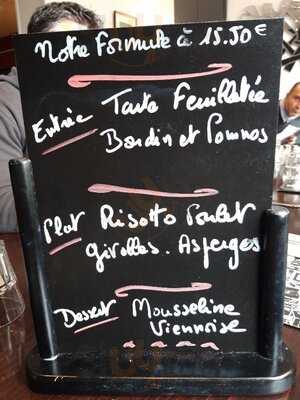 Notre Formule à 15.50 €
Entrée Tarte Feuilletée
Boudin et Pommes
Plat Risotto Poulet
girolles. Asperges
Dessert Mousseline
Viennoise